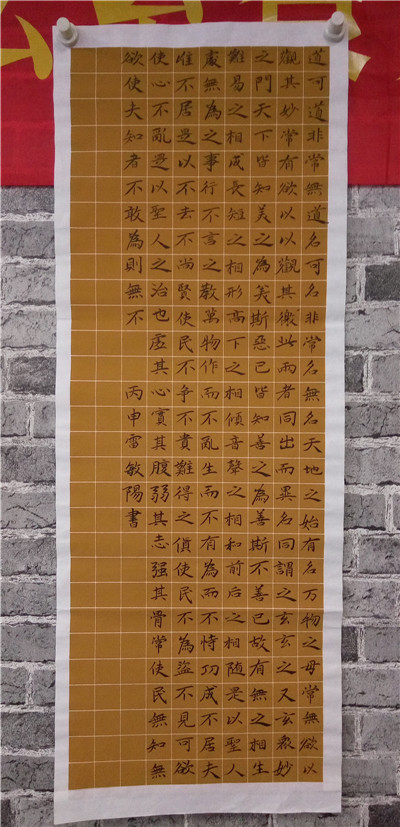 道可道非常無道名可名非常名無名天地之始有名万物之母常無欲以
觀其妙常有欲以以觀其徼此而者同出而異名同謂之玄玄之又玄衆妙
之門天下皆知美之為美斯惡已皆知善之為善斯不善已故有無之相生
難易之相成長短之相形高下之相傾音聲之相和前后之相随是以聖人
處無為之事行不言之教萬物作而不亂生而不有為而不恃功成不居夫
唯不居是以不去不尚賢使民不爭不貴難得之貨使民不為盜不見可欲
使心不亂是以聖人之治也虛其心實其腹弱其志强其骨常使民無知無
欲使夫知者不敢為則無不 丙申雷敏陽書